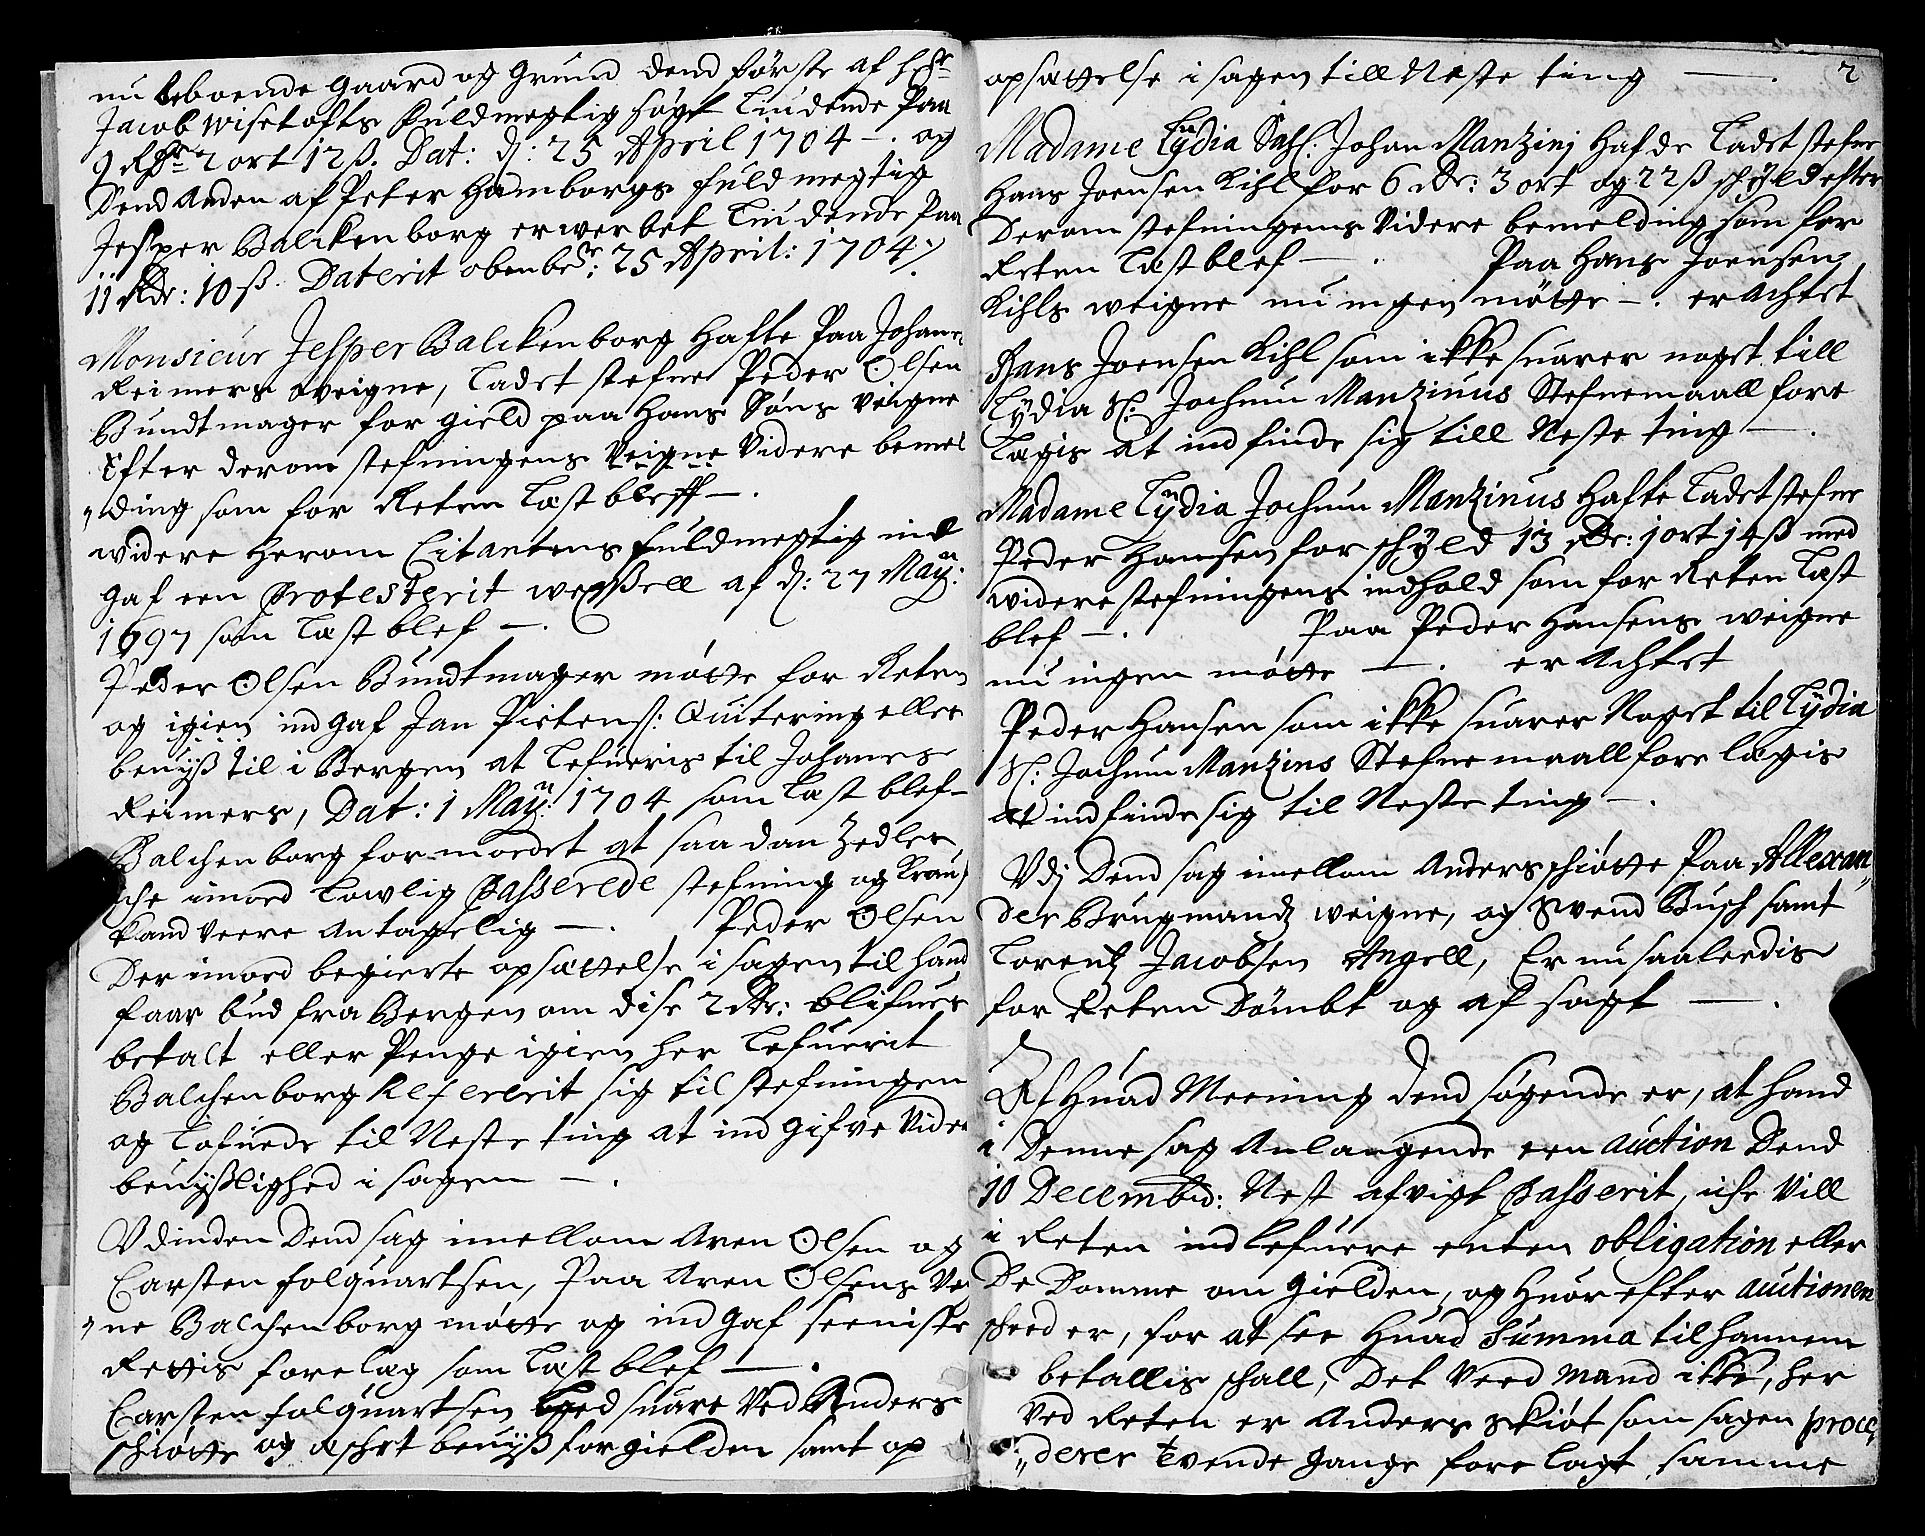 nu beboende gaard og grund dend første af hr:
Jacob Wisetofts fuldmegtig søgt liudende paa
9 Rdr 2 ort 12 ß. Dat: d: 25 April 1704 —. og
Dend Anden af Peter Hamborgs fuldmegtig
Jesper Balckenborg erwerbet liudende paa
11 Rdr: 10 ß. Daterit obenbr: 25 April: 1704
Monsieur Jesper Balckenborg hafte paa Johanes
Reimers weigne, ladet stefne Peder Olsen
Bundtmager for gield paa hans Søns veigne
Efter derom stefningens veigne videre bemel
„ding som for Reten læst bleff —.
widere herom Citantens fuldmegtig ind
gaf een Protesterit wexßell af d: 27 Maÿ:
1697 som læst blef —.
Peder Olsen Bundtmager møtte for Reten
og igien ind gaf Jan Pietens: Quitering eller
beuyß til i Bergen at lefueris til Johanes
Reimers, Dat: 1 Maÿ: 1704 som læst blef —
Balchenborg formoedet at saadan Zedler
iche imod lowlig Passerede stefning og Krauf
kand veere Antagelig —. Peder Olsen
Der imod begierte opsættelse i sagen til hand
faar bud fra Bergen om dise 2 Rdr: blifuer
betalt eller Penge igien her lefuerit
Balchenborg Refererit sig til stefningen
og lofuede til Neste ting at ind gifve vider
beuyßlighed i sagen —.
Vdinden Dend sag imellom Aren Olsen og
Carsten folquartsen, Paa Aren Olsens vei
„ne Balchenborg møtte og ind gaf seeniste
Rettis forelag som læst blef —.
Carsten folquartsen lod suare ved Anders
schiøtte og æschet beuyß for gielden samt op
2
opsættelse i sagen till Neste ting —.
Madame Lÿdia Sahl: Johan Manzinj hafde ladet stefne
Hans Joensen Kihl for 6 Rdr: 3 ort og 22 ß schyld efter
Derom stefningens videre bemelding som for
Reten læst blef —. Paa Hans Joensen
Kihls weigne nu ingen møtte —. er Achtet
Hans Joensen Kihl som ikke suarer noget till
Lÿdia Sl: Jochum Manzinus Stefnemaall fore
lægis at indfinde sig till Neste ting —.
Madame Lÿdia Jochum Manzinus hafte ladet stefne
Peder Hansen for schyld 13 Rdr: 1 ort 14 ß med
widere stefningens indhold som for Reten læst
blef —. Paa Peder Hansens weigne
nu ingen møtte —. er Achtet
Peder Hansen som ikke suarer Noget til Lÿdia
Sl: Jochum Manzins Stefnemaall fore lægis
at indfinde sig til Neste ting —.
Vdj Dend sag imellom Anders schiøtte Paa Allexan„
der Brugmandz weigne, og Swend Busch samt
Lorentz Jacobsen Angell, Er nu saaleedis
for Reten Dømbt og af sagt —.
Af Huad Meening dend søgende er, at hand
i Denne sag Anlangende een auction Dend
10 Decembr: Nest afvigt Passerit, iche vill
i Reten indlefuere enten obligation eller
De Domme om gielden, og huor efter auctionen
scheed er, for at see Huad Summa til hannem
betallis schall, Det veed mand ikke, her
ved Reten er Anders Skiøt som sagen proce„
„derer tvende gange fore lagt samme